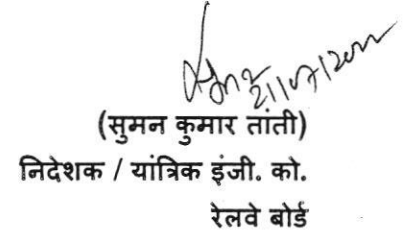 21/07/2022
(सुमन कुमार तांती)
निदेशक / यांत्रिक इंजी. को.
रेलवे बोर्ड